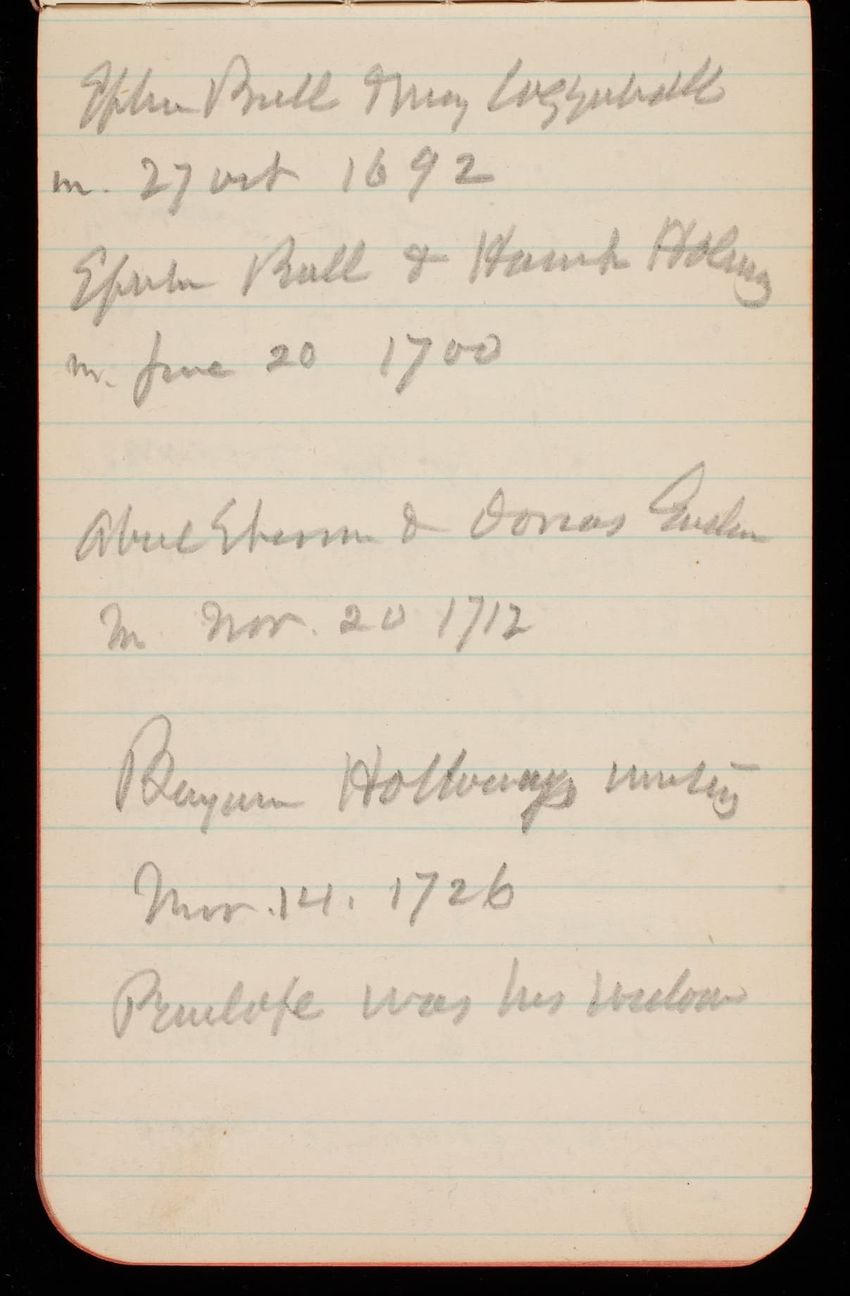 Ephm Bull & Mary Coggeshall
m. 27 Oct 1692
Ephm Bull & Hannah Holway
m. June 20 1700
Abiel & Dorcas
m Nov. 20 1712
Benjamin Holloway
Nov. 14. 1726
Penelope was his widow